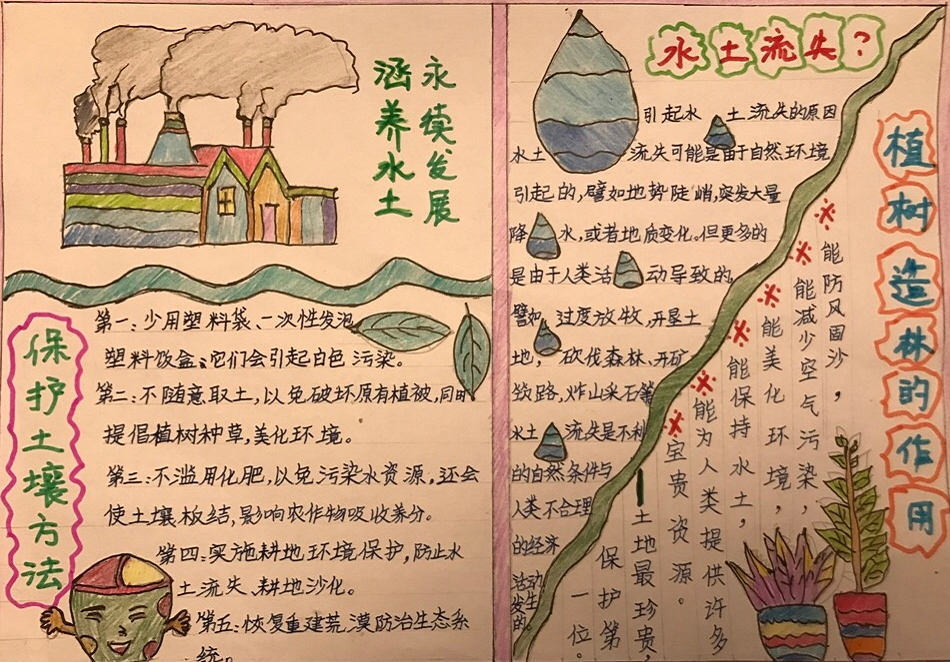 永续发展
涵养水土
保护土壤方法
第一:少用塑料袋、一次性发泡
塑料饭盒、它们会引起白色污染。
第二:不随意取土,以免破坏原有植被,同时
提倡植树种草,美化环境。
第三:不滥用化肥,以免污染水资源,还会
使土壤板结,影响农作物吸收养分。
第四:实施耕地环境保护,防止水
土流失、耕地沙化。
第五:恢复重建荒漠防治生态系
统。
水土流失?
引起水土流失的原因
水土流失可能是由于自然环境
引起的,譬如地势陡峭,突发大量
降水,或者地质变化。但更多的
是由于人类活动导致的,
譬如过度放牧,开垦土
地,砍伐森林、开矿
筑路,炸山采石等
水土流失是不利
的自然条件与
人类不合理
的经济
活动
发生
的。
植树造林的作用
能防风固沙,
能减少空气污染,
能美化环境,
能保持水土,
能为人类提供许多
宝贵资源。
土地最珍贵,
保护第
一位。